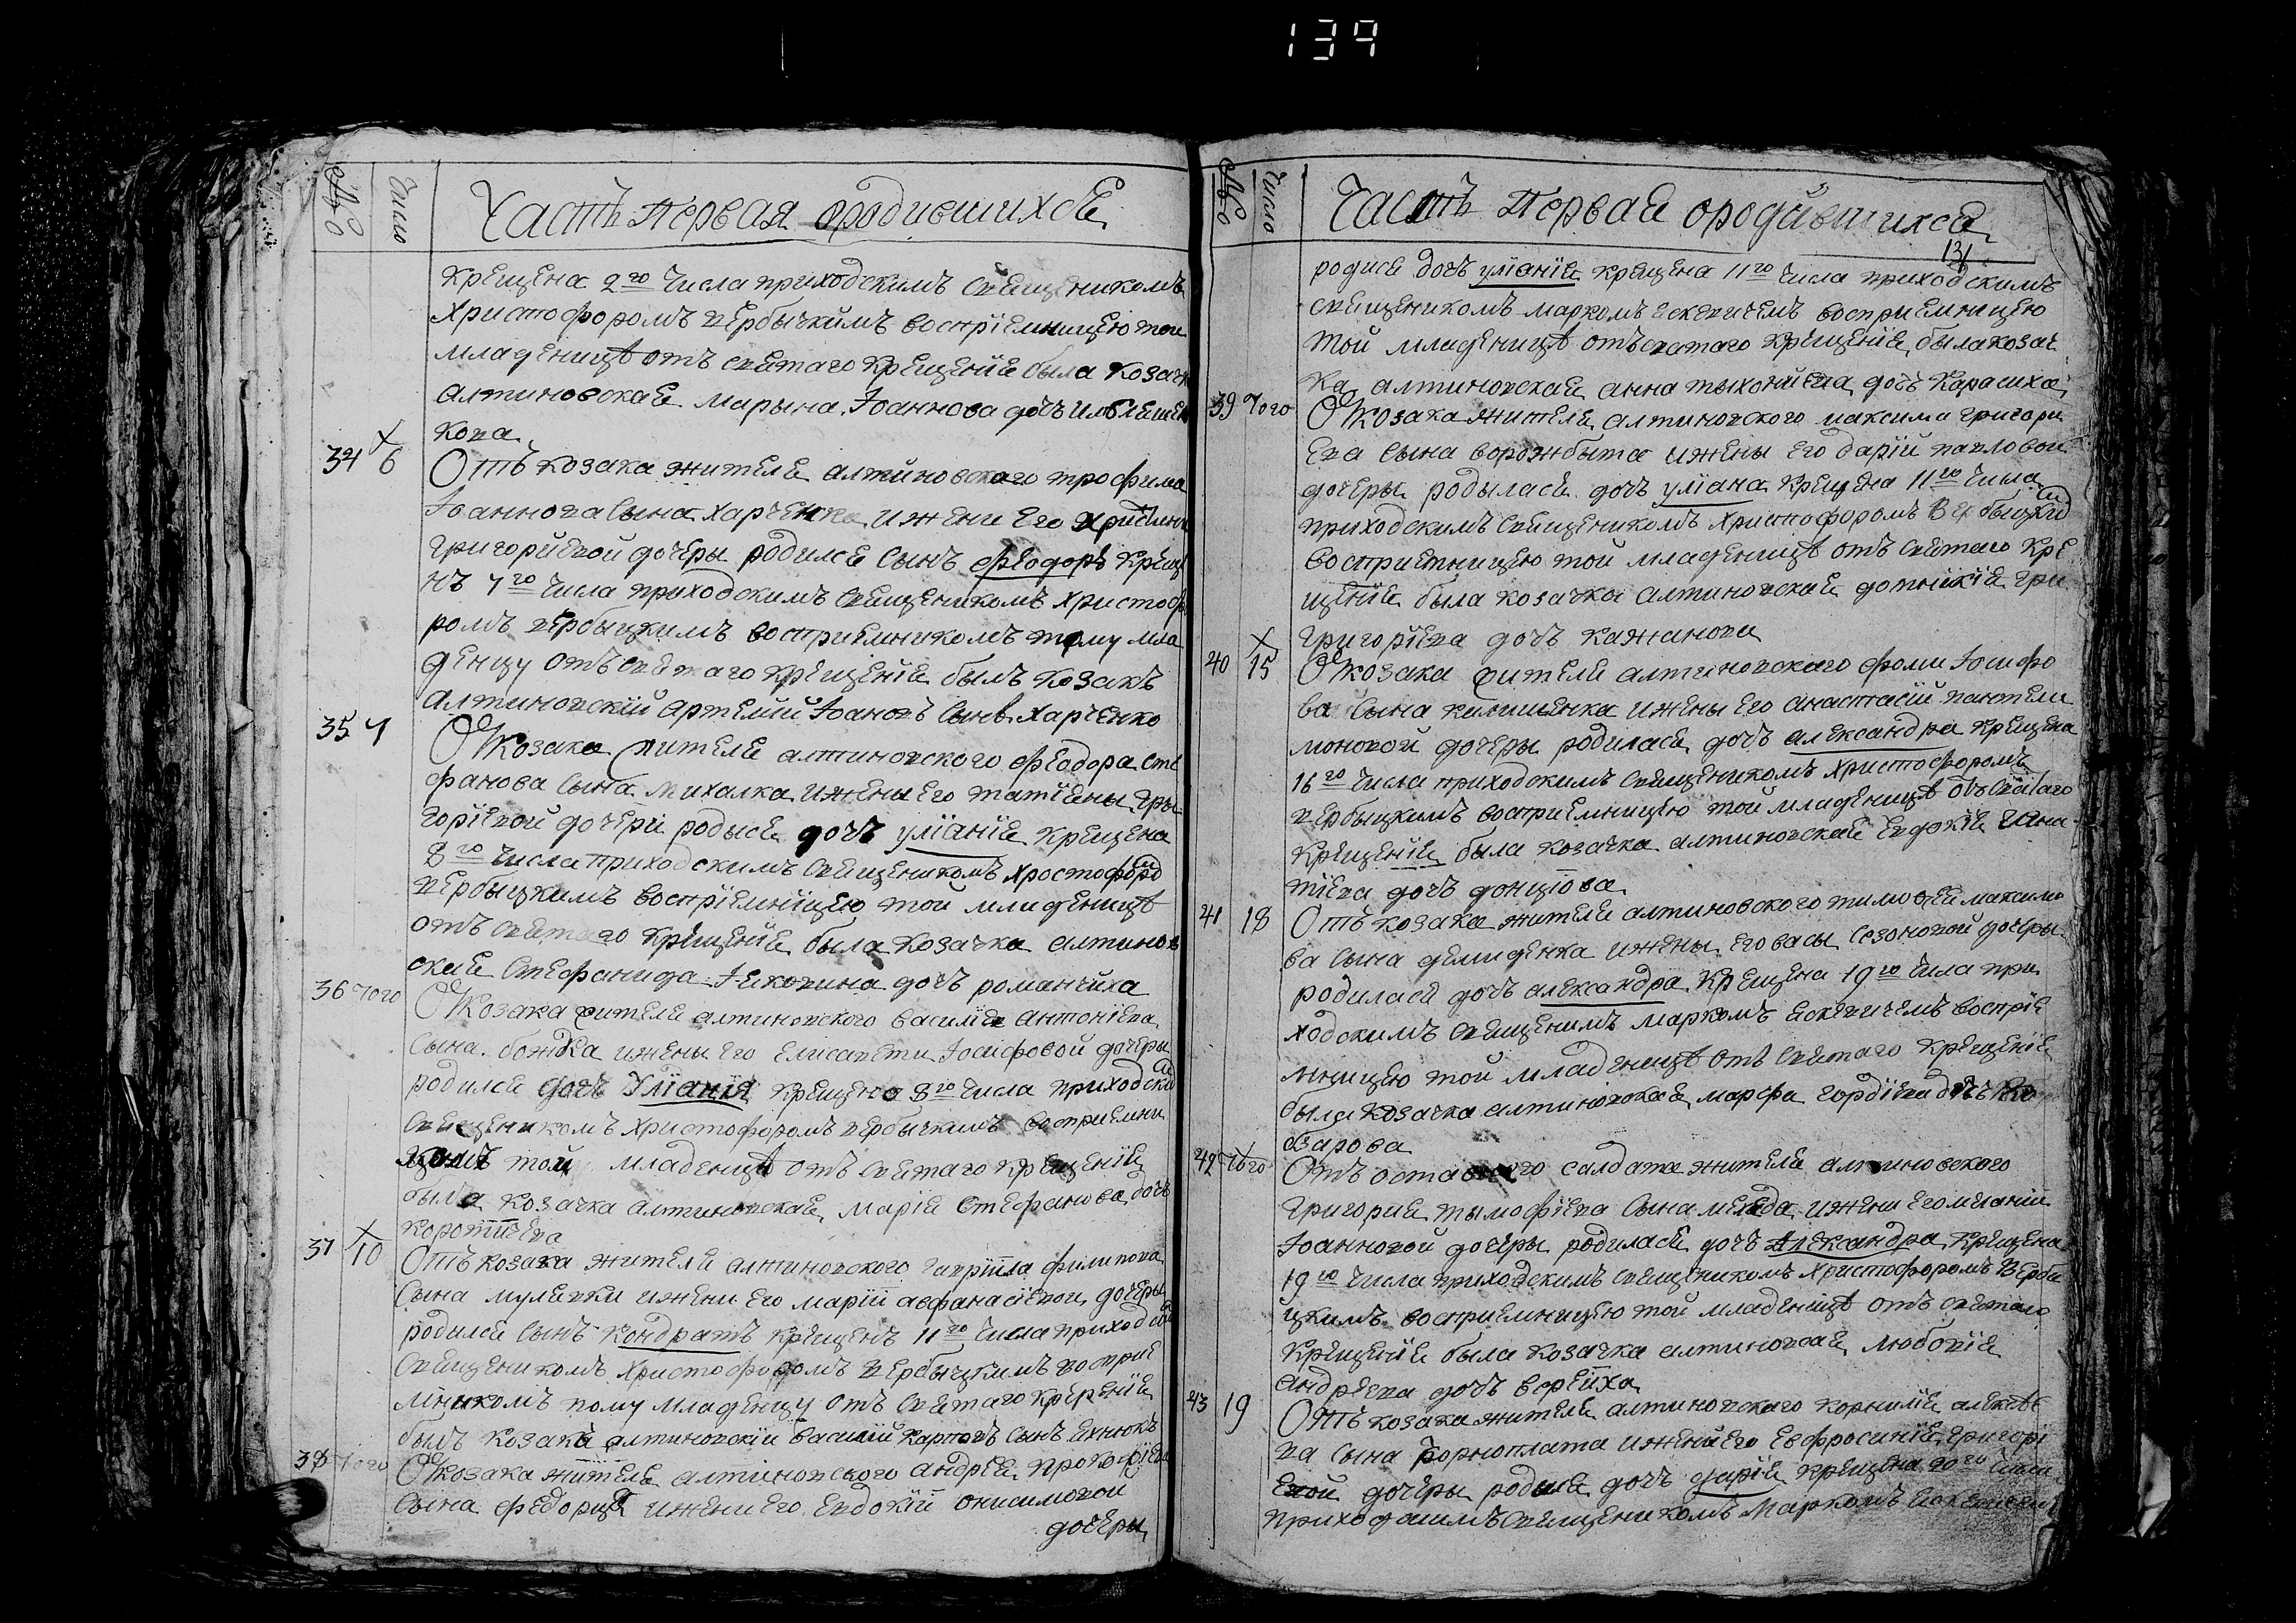 139
№ Число Часть первая ородившихся
крещена 2го числа приходскимъ священикомъ
Христофоромъ вербычкимъ воспріемницею той
младеницѣ отъ святаго крещенія была козачк
алтиновская марына Іоаннова дочъ
кова
34 6 Отъ козака жителя алтиновского трофима
Іоаннова сына харченка ижени его
григоріевой дочеры родился сынъ феодоръ креще
нъ 7го числа приходскимъ священикомъ христоф
ромъ вербыцкимъ восприемникомъ тому мла
денцу отъ святаго крещенія былъ козакъ
алтиновскій артемій Іоановъ сынъ харченко
35 7 Отъ козака жителя алтиновского феодора сте
фанова сына михалка ижени его татіяны гры
горіевой дочери родыся дочъ уліанія крещена
8го числа приходскимъ священикомъ христофоро
вербыцкимъ воспріемніцею той младеницѣ
отъ святаго крещенія была козачка алтинов
ская стефанида дочъ романчиха
36 того Отъ козака жителя алтиновского василія антоніева
сына божка ижены его елисавети Іосифовой дочеры
родилси дочъ Уліанія крещено 8го числа приходски
священикомъ христофоромъ вербычкимъ восприемни
цою той младеницѣ отъ святаго крещенія
была козачка алтиновская марія стефанова дочъ

37 10 Отъ козака жителя алтиновского гавріила филипова
сына мулявки ижени его маріи авфанасіевои дочеры
родилси сынъ кондратъ крещенъ 11го числа приходски
священикомъ христофоромъ вербыцкимъ воспріе
мникомъ тому младенцу отъ святаго крещенія
былъ козакъ алтиновскіи василій карповъ сынъ
38 того Отъ козака жителя алтиновского андрея прокофіева
сына федорца ижени его евдокіи онисимовои
дочеры
№ Число Часть первая ородившихся
131
родися дочъ уліанія крещена 11го числа приходскимъ
священикомъ маркомъ ескевичемъ восприемницею
той младеницѣ отъ святаго крещенія была козач
ка алтиновская анна тыхоніева дочъ карасиха
39 того Отъ козака жителя алтиновского максима григори
ева сына ворожбыта ижены его даріи павловой
дочеры родылася дочъ уліана крещена 11го числа
приходскимъ священикомъ христофоромъ Вербыцки
восприемницею той младеницѣ отъ святаго кре
щенія была козачка алтиновская гри
григоріева дочъ кажанова
40 15 Отъ козака жителя алтиновского фоми Іосифо
ва сына ижены его анастасіи пантели
моновой дочеры родилася дочъ александра крещена
16го числа приходскимъ священикомъ христофоромъ
вербыцкимъ восприемницею той младеницѣ отъ святаго
крещенія была козачка алтиновская евдокія игна
тіева дочъ донцова
41 18 Отъ козака жителя алтиновского тимофея максимо
ва сына демиденка ижены его васы созоновой дочеры
родилася дочъ александра крещена 19го числа при
ходскимъ священимъ маркомъ ескевичемъ воспріе
мницею той младеницѣ отъ святаго крещенія
была козачка алтиновская марфа гордіева дочъ

42 того Отъ оставного салдата жителя алтиновского
григория тымофіева сына ижени его меланіи
Іоанновой дочеры родилася дочъ александра крещена
19го числа приходскимъ священикомъ христофоромъ Верби
цкимъ восприемницею той младеницѣ отъ святаго
крещенія была козачка алтиновская
андреева дочъ
43 19 Отъ козака жителя алтиновского корнилія алексѣе
ва сына ижени его евфросиніи григорі
евой дочеры родися дочъ дарія крещена 20го числа
приходскимъ священикомъ маркомъ